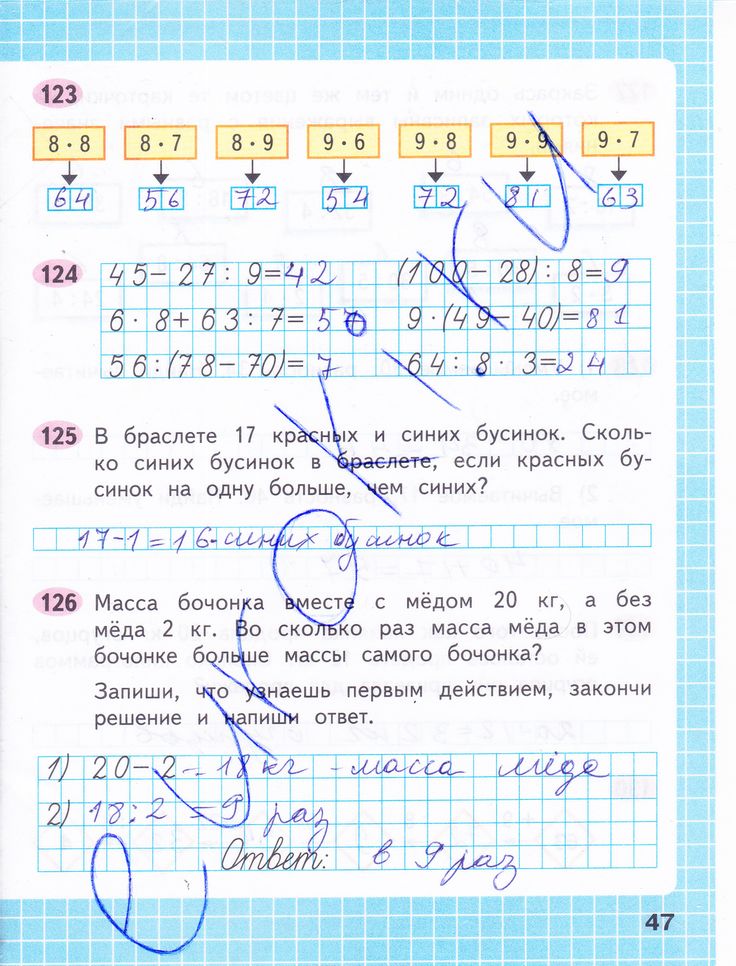 123
8·8 8·7 8·9 9·6 9·8 9·9 9·7
64 56 72 54 72 81 63
124 45-27:9=42 (100-28):8=9
6·8+63:7=57 9·(49-40)=81
56:(78-70)=7 64:8·3=24
125 В браслете 17 красных и синих бусинок. Сколь-
ко синих бусинок в браслете, если красных бу-
синок на одну больше, чем синих?
17-1=16-синих бусинок
126 Масса бочонка вместе с мёдом 20 кг, а без
мёда 2 кг. Во сколько раз масса мёда в этом
бочонке больше массы самого бочонка?
Запиши, что узнаешь первым действием, закончи
решение и напиши ответ.
1) 20-2=18 кг - масса мёда
2) 18:2=9 раз
Ответ: в 9 раз
47